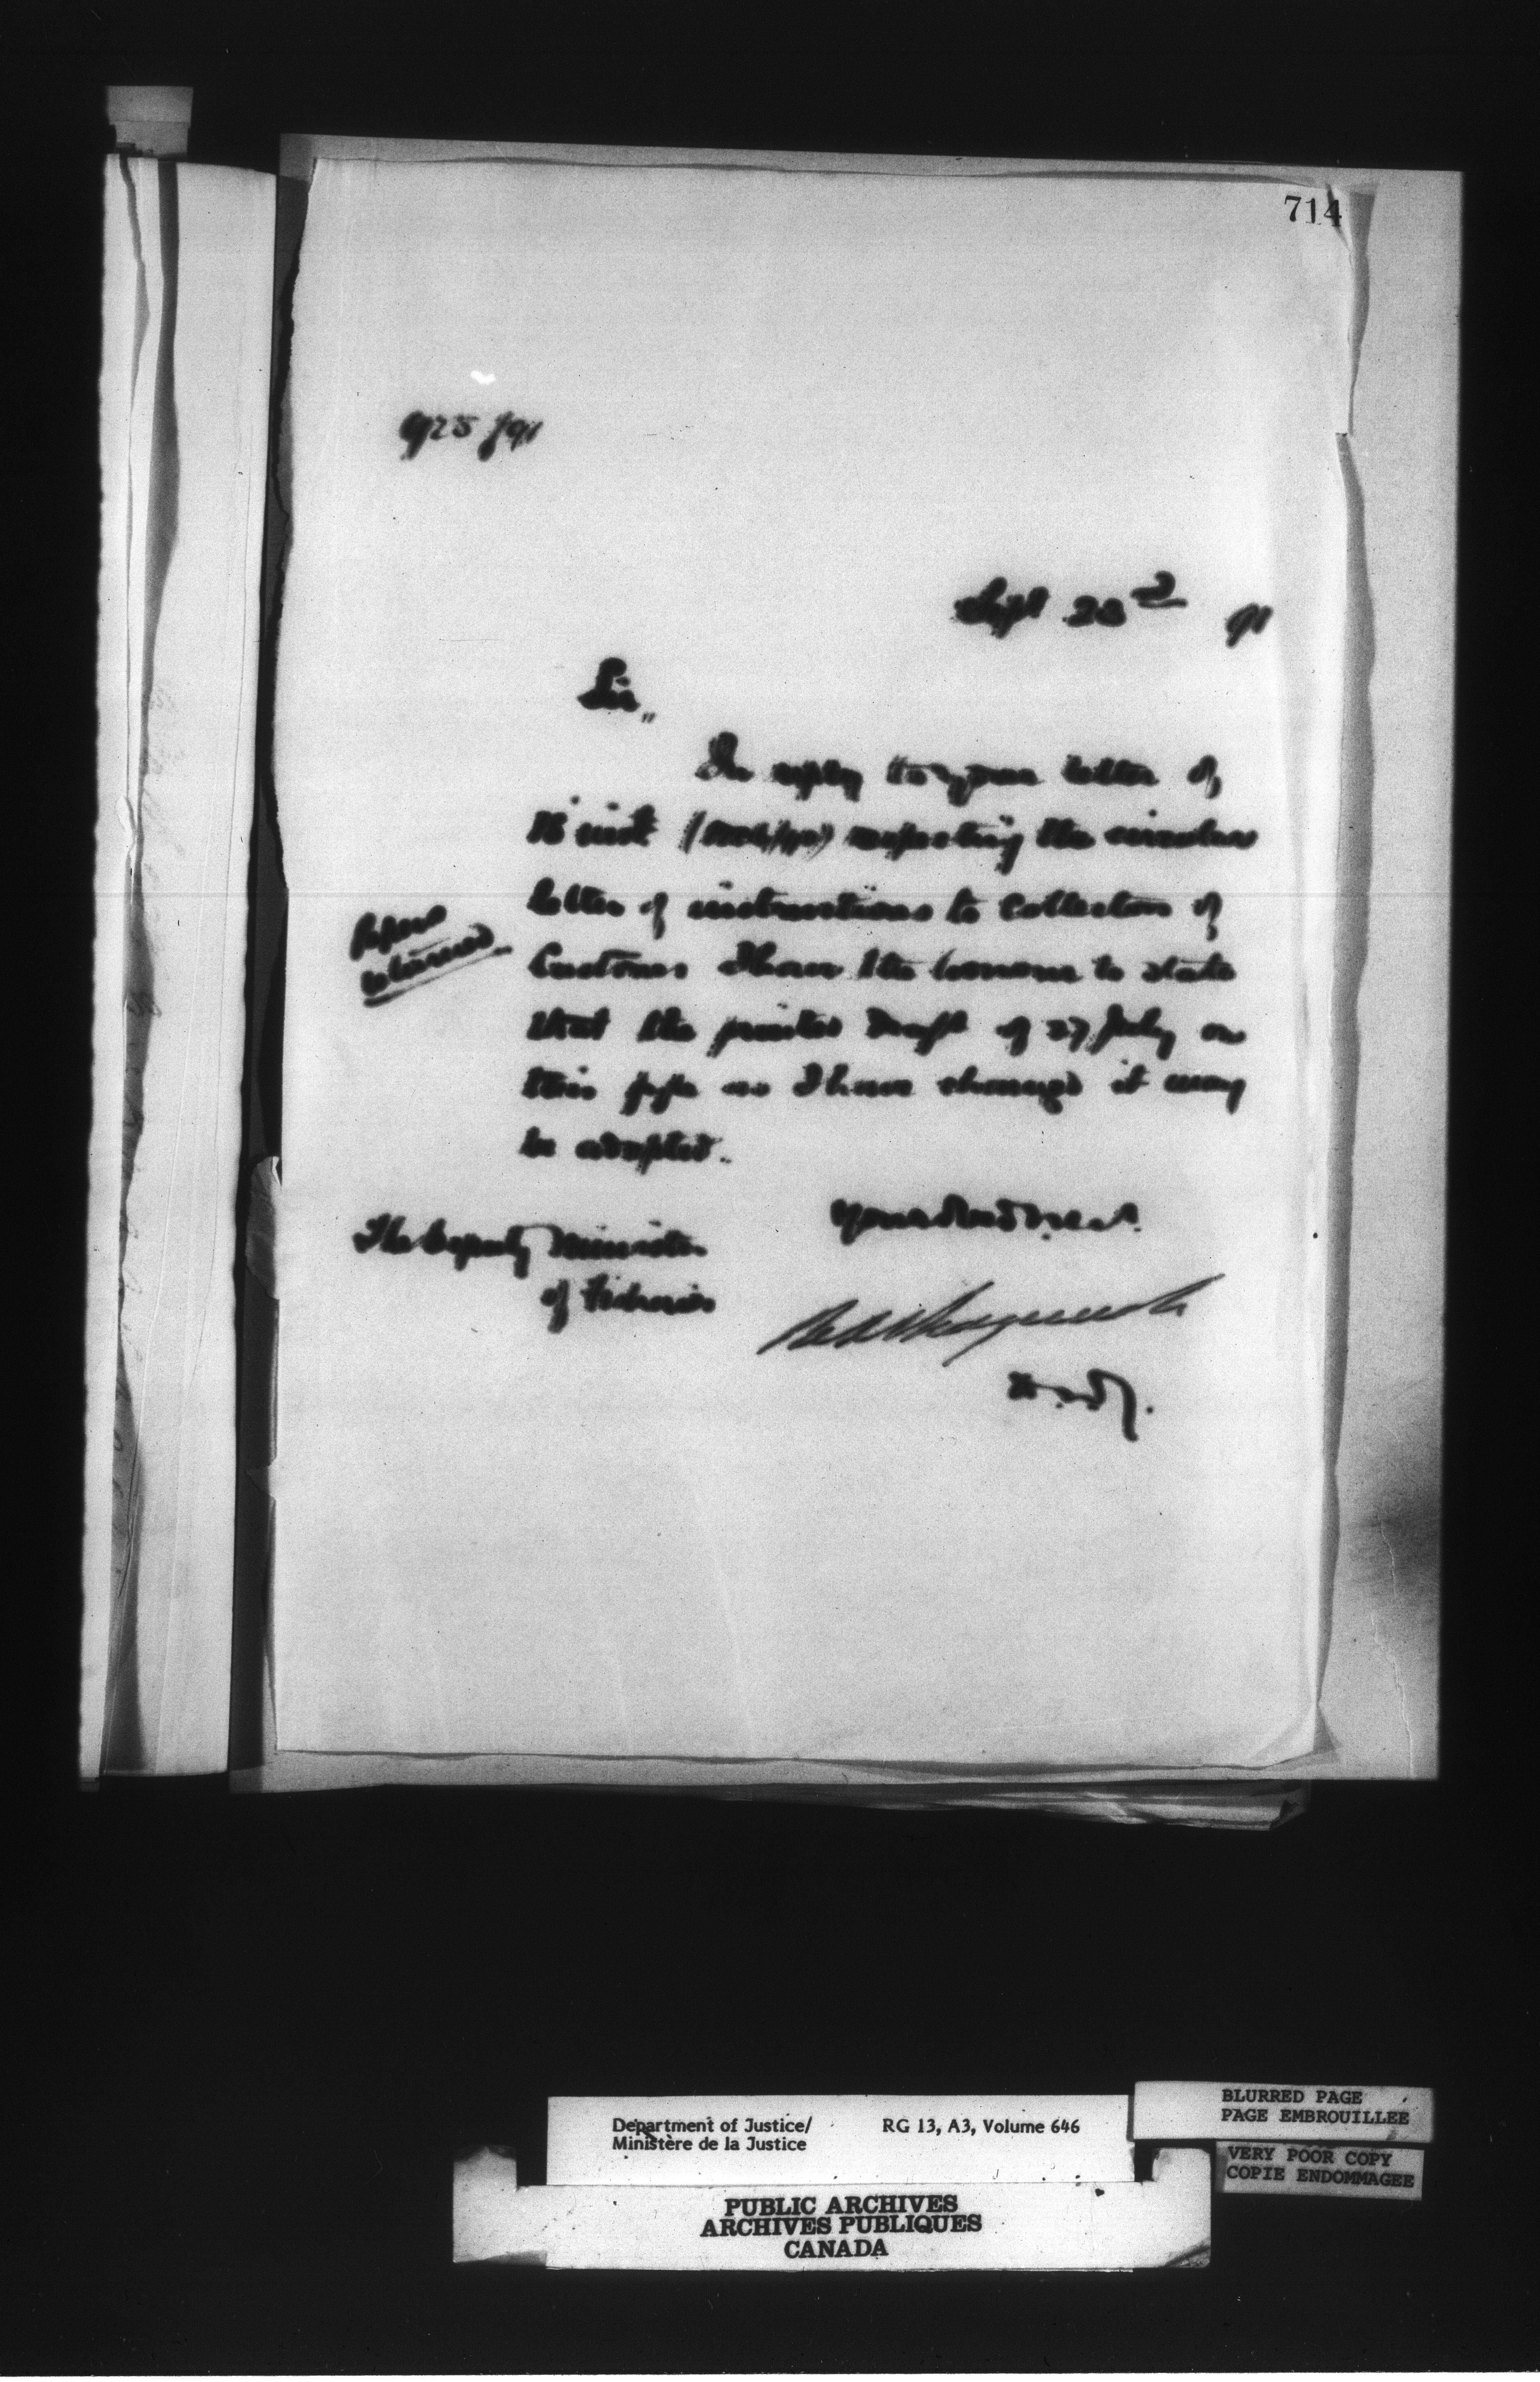 714
925/91
Sept 23rd 91
Sir,,
In reply to your letter of
15 inst respecting the circular
letter of instructions to Collectors of
Customs I have the honour to state
that the printed draft of 27 July on
this fyle as I have changed it may
be adopted.
Papers
returned.
The Deputy Minister
of Fisheries
Department of Justice/
Ministère de la Justice
RG 13, A3, Volume 646
BLURRED PAGE
PAGE EMBROUILLEE
VERY POOR COPY
COPIE ENDOMMAGEE
PUBLIC ARCHIVES
ARCHIVES PUBLIQUES
CANADA